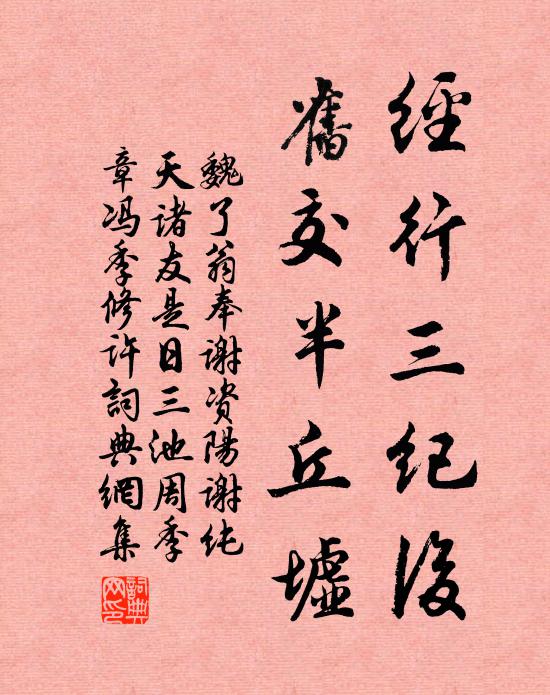 經行三纪後
舊交半丘墟
魏了翁奉谢资陽谢纯
天诸友是日三池周季
章冯季修许詞典網集
詞典
网印